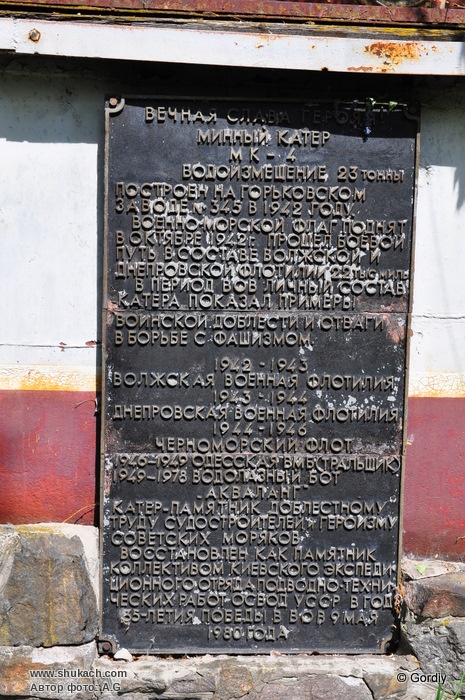 ВЕЧНАЯ СЛАВА ГЕРОЯМ
МИННЫЙ КАТЕР
МК-4
ВОДОИЗМЕЩЕНИЕ 23 ТОННЫ
ПОСТРОЕН НА ГОРЬКОВСКОМ
ЗАВОДЕ № 345 В 1942 ГОДУ.
ВОЕННО-МОРСКОЙ ФЛАГ ПОДНЯТ
В ОКТЯБРЕ 1942Г. ПРОШЕЛ БОЕВОЙ
ПУТЬ В СОСТАВЕ ВОЛЖСКОЙ И
ДНЕПРОВСКОЙ ФЛОТИЛИЙ
В ПЕРИОД ВОВ ЛИЧНЫЙ СОСТАВ
КАТЕРА ПОКАЗАЛ ПРИМЕРЫ
ВОИНСКОЙ ДОБЛЕСТИ И ОТВАГИ
В БОРЬБЕ С ФАШИЗМОМ
1942-1943
ВОЛЖСКАЯ ВОЕННАЯ ФЛОТИЛИЯ
1943-1944
ДНЕПРОВСКАЯ ВОЕННАЯ ФЛОТИЛИЯ
1944-1946
ЧЕРНОМОРСКИЙ ФЛОТ
1946-1949 ОДЕССКАЯ ВМБ(ТРАЛЬЩИК)
1949-1978 ВОДОЛАЗНЫЙ БОТ
„АКВАЛАНГ"
КАТЕР-ПАМЯТНИК ДОБЛЕСТНОМУ
ТРУДУ СУДОСТРОИТЕЛЕЙ И ГЕРОИЗМУ
СОВЕТСКИХ МОРЯКОВ
ВОССТАНОВЛЕН КАК ПАМЯТНИК
КОЛЛЕКТИВОМ КИЕВСКОГО ЭКСПЕДИ
ЦИОННОГО ОТРЯДА ПОДВОДНО-ТЕХНИ
ЧЕСКИХ РАБОТ ОСВОД УССР В ГОД
35-ЛЕТИЯ ПОБЕДЫ В ВОВ 9 МАЯ
1980 ГОДА
www.shukach.com
Автор фото: A.G
© Gordiy